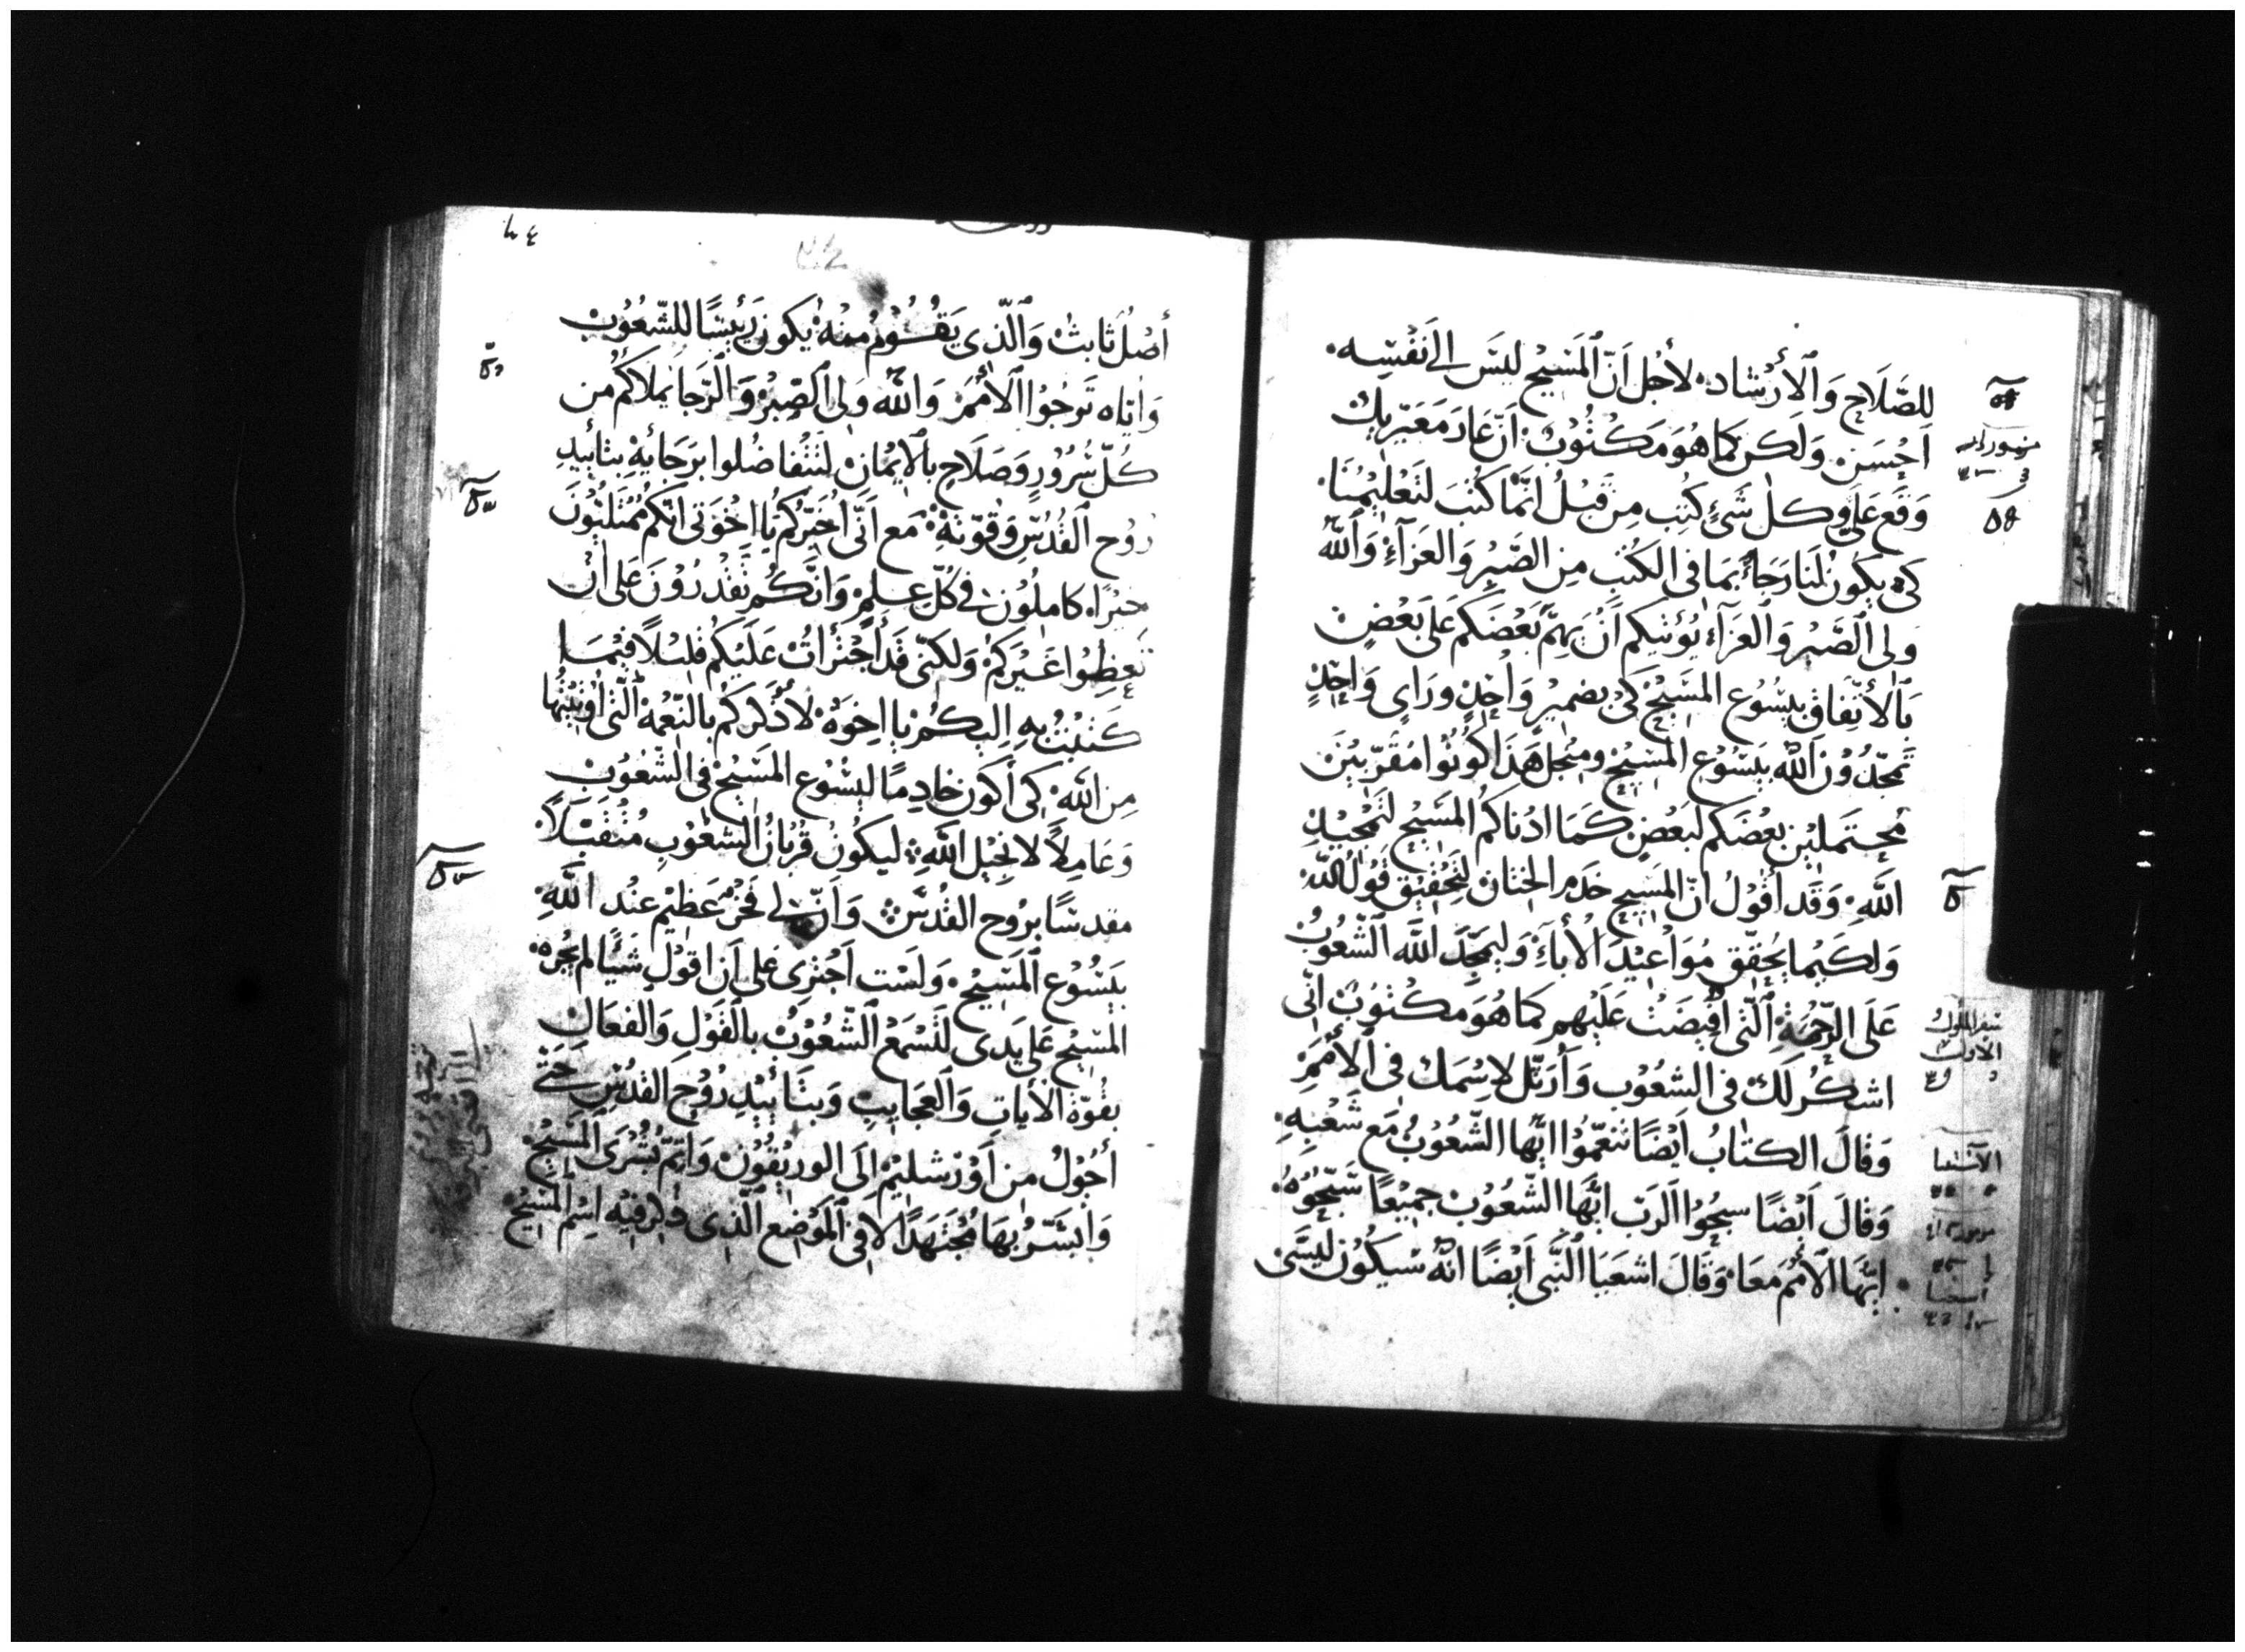 للصَّلَاحِ وَالْأرْشاد لأجْل اَنَّ الْمَسِيْح ليسَ الي نَفْسِه
اَحْسَنَ وَلَكن كَما هُوَ مَكتُوْبٌ اَنّ عَارَ مُعَيّريك
وَقَع عَلَيَّ وكل شَئٍ كُتِب مِن قَبْلُ انَّما كُتبَ لتَعْليْمنَا
كَي يكون لَنا رَجَاءً بمَا في الكُتبِ مِن الصَّبرْ وَالعَزآءِ وَاَللّه
وَلى الصَّبْر وَالعَزآء يُؤتيكم اَنْ يهتمّ بَعْضَكم عَلى بَعْضٍ
بَالأتّفَاق بيسُوْع المَسِيْح كَيْ بضميْر وَاحدٍ وراى وَاحِدٍ
تمجّدُوْن اَللّه بيَسُوع المسِيْح ومنْ اجل هَذَا كُوْنُوْا مُقَرّبيْنَ
مُحتملِيْن بعْضَكم لبَعْضٍ كَمَا ادْناكمُ المَسِيْح لتَمْجيْدِ
اللَّهِ وَقَد أقُوْلُ انّ المَسِيْح خَدَم الختَان لتحْقيْق قَوْل اللّه
وَلكَيْما يُحقّق مُوَاعيْدَ الْأباءَ وَليمَجّد اللّهَ الشُّعُوْبُ
عَلَى الرّحْمةِ الّتى اُفيضَتْ عَلَيْهم كَما هُوَ مَكتوُبٌ انّى
اشكُر لَكَ فى الشعُوْب وَأرَتّل لاسْمَك فى الْأمَمِ
وَقَالَ الكتَابُ اَيْضًا تنَعّمُوْا ايّها الشّعُوْبُ مَع شَعْبِهِ
وَقَالَ اَيْضًا سبحُوْا الرَب ايّها الشّعُوْب جميْعًا سَبّحُوْهُ
ايّها الأمَم مَعا وَقَالَ اشعيَا النَّبى اَيْضًا انّه سَيكُوْن ليسَّى
أصْلٌ ثابتٌ وَالّذى يَقُوْمُ منْهُ يكون رَئيسًا للشّعُوْبْ
وَاياه تَرجُوْا الأمَمْ وَاللّه وَلى الصّبْر وَالرّجَا يملاكُم من
كُلّ سُرُورٍ وَصَلَاحٍ بالْايْمان لتتفاضُلوا برَجَائِهِ بتأييدِ
رُوح القُدُسِ وَقُوّتهِ مَع اَنّى اُخبّركُم يَا اخْوَتى انّكم مُمْتَلئوْنَ
خيْرًا كاملُوْن في كُلّ عِلمْ وَانّكُم تَقْدرُوْنَ عَلى انْ
تَعظِوُا غَيْركم وَلكنّى قَد أجْتَرأتُ عَلَيْكم قليْلاً فيْمَا
كتبْتُ بهِ اِليكُمْ يا اخوَه لأذكركُم بالنّعْمهِ الّتى اُوتيْتُها
مِن اللّه كى أكوَن خادِمًا ليسُوع المَسيْح فى الشّعُوبِ
وَعَامِلاً لانْجيْل اللّهِ ليكوُنْ قُربَانُ الشعُوْبِ مُتقَبّلاً
مقدسًا برُوح القُدُسِ وَاَنّ لى فَخرٌ عَظيْم عنْد اللّهِ
بيَسُوْع الْمَسيْح وَلسْت اَجْترى عَلى اَن اقوْل شيئًا لم يُجْرهِ
المسيْح عَلى يَدى لتَسْمَع الشّعُوْب بالقَوْلِ وَالفعَال
بقُوّة الْأيات وَالْعَجَايبِ وَبتأييْد رُوْح القدُسِ حَتّى
أجُوْلُ من اَوْرشليْم اِلَى الوريْقُوْن وَاتمّ بُشْرَى المَسيْح
وَابشّرُ بهَا مُجْتَهَدًا لا في الْموْضِع الّذى ذُكر فيْه اسْم المَسيْح